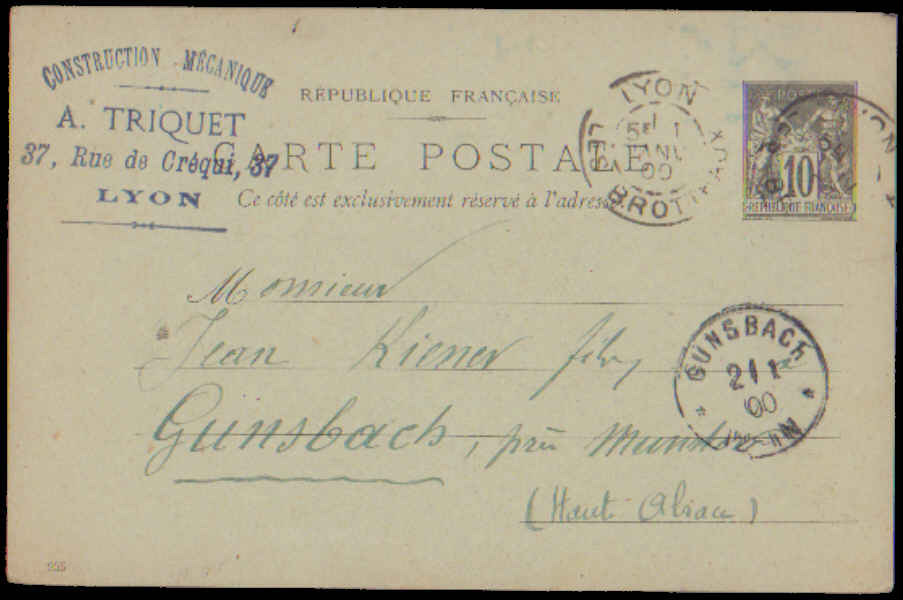 CONSTRUCTION MÉCANIQUE
A. TRIQUET
37, Rue de Créqui, 37
LYON
RÉPUBLIQUE FRANÇAISE
CARTE POSTALE
Ce côté est exclusivement réservé à l'adresse
LYON
5E 1
JANV
00
BROTTEAUX
POSTES
10
REPUBLIQUE FRANÇAISE
Monsieur
Jean Kiener fils
Gunsbach, près Munster
(Haute Alsace)
GÜNSBACH
2/1
00
255